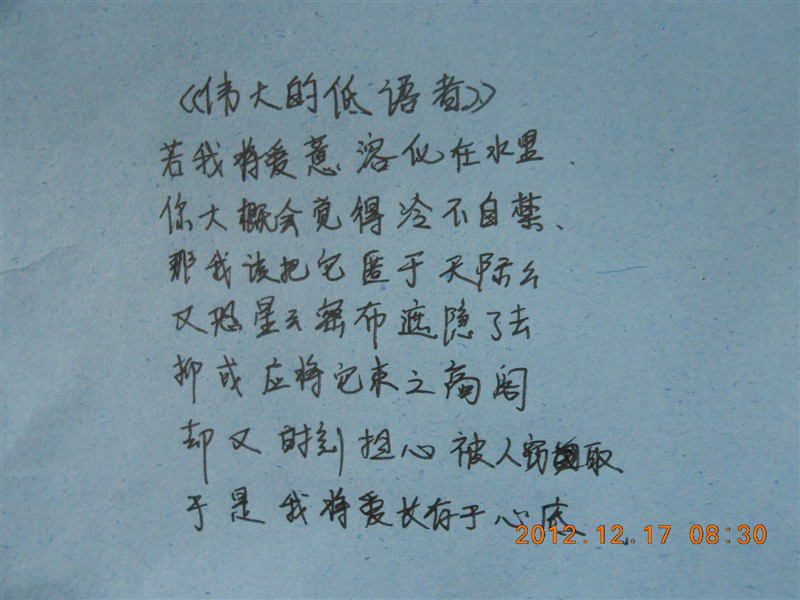 《伟大的低语者》
若我将爱意溶化在水里、
你大概会觉得冷不自禁、
那我该把它匿于天际么
又恐星云密布遮隐了去
抑或应将它束之高阁
却又时刻担心被人窃取
于是我将爱放存于心底
2012.12.17 08:30